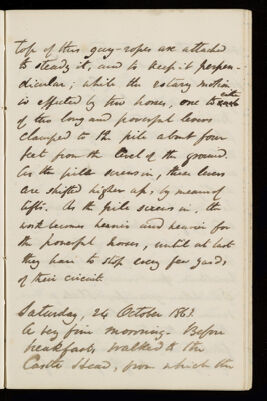 top of this guy-ropes are attached
to steady it, and to keep it perpen-
dicular; while the rotary motion
is effected by two horses, one to each
of two long and powerful levers
clamped to the pile about four
feet from the level of the ground.
As the pile screws in, these levers
are shifted higher up, by means of
lifts. As the pile screws in, the
work becomes heavier and heavier for
the powerful horses, until at last
they have to stop every few yards
of their circuit
Saturday, 24 October 1863.
A very fine morning. Before
breakfast, walked to the
Castle Head, from which the